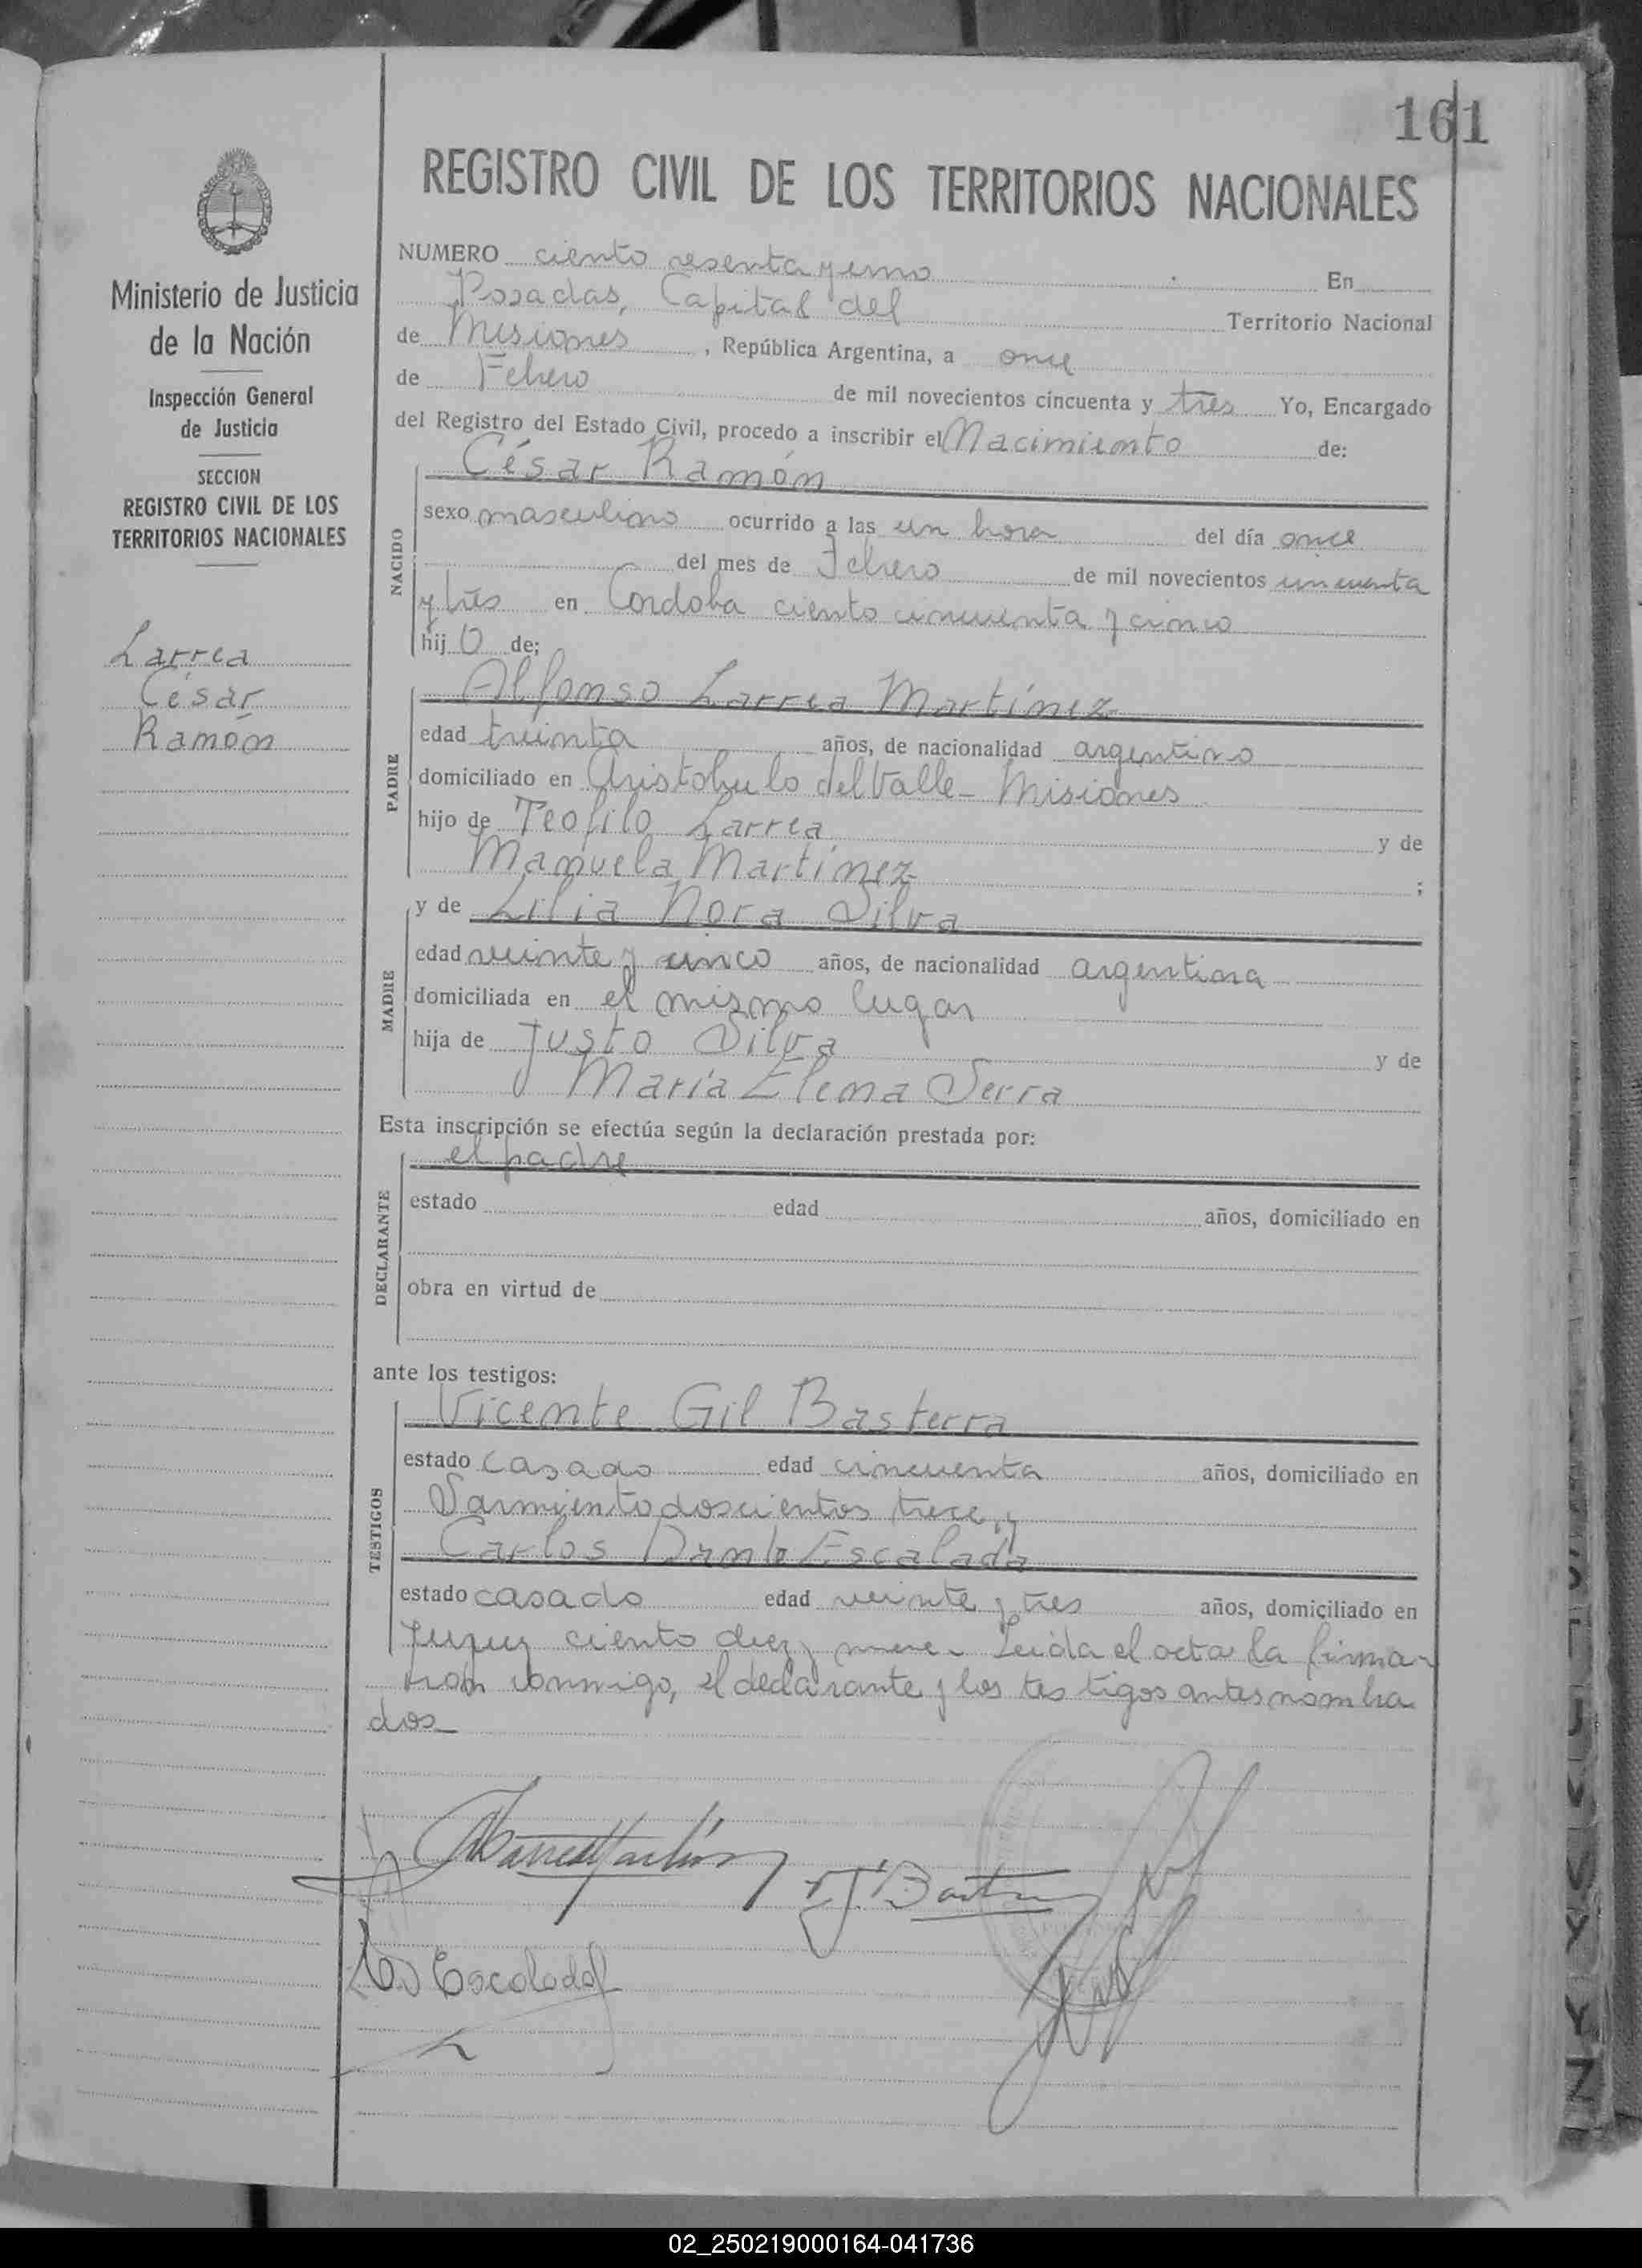 161
REGISTRO CIVIL DE LOS TERRITORIOS NACIONALES
Ministerio de Justicia
de la Nación
Inspección General
de Justicia
SECCION
REGISTRO CIVIL DE LOS
TERRITORIOS NACIONALES
Larrea
César
Ramón
NUMERO ciento sesenta y uno En
Posadas, Capital del Territorio Nacional
de Misiones, República Argentina, a once
de Febrero de mil novecientos cincuenta y tres Yo, Encargado
del Registro del Estado Civil, procedo a inscribir el Nacimiento de:
NACIDO
César Ramón
sexo masculino ocurrido a las un hora del día once
del mes de Febrero de mil novecientos cincuenta
y tres en Cordoba ciento cincuenta y cinco
hijo de;
PADRE
Alfonso Larrea Martínez
edad treinta años, de nacionalidad argentino
domiciliado en Aristobulo del Valle - Misiones
hijo de Teofilo Larrea y de
Manuela Martínez ;
MADRE
y de Lilia Nora Silva
edad veinte y cinco años, de nacionalidad argentina
domiciliada en el mismo lugar
hija de Justo Silva y de
María Elena Serra
Esta inscripción se efectúa según la declaración prestada por:
DECLARANTE
el padre
estado edad años, domiciliado en
obra en virtud de
ante los testigos:
TESTIGOS
Vicente Gil Basterra
estado casado edad cincuenta años, domiciliado en
Sarmiento doscientos trece, y
Carlos Dante Escalada
estado casado edad veinte y tres años, domiciliado en
Jujuy ciento diez y nueve - Leida el acta la firma-
ron conmigo, el declarante y los testigos antes nombra
dos_
Escalada
02_250219000164-041736